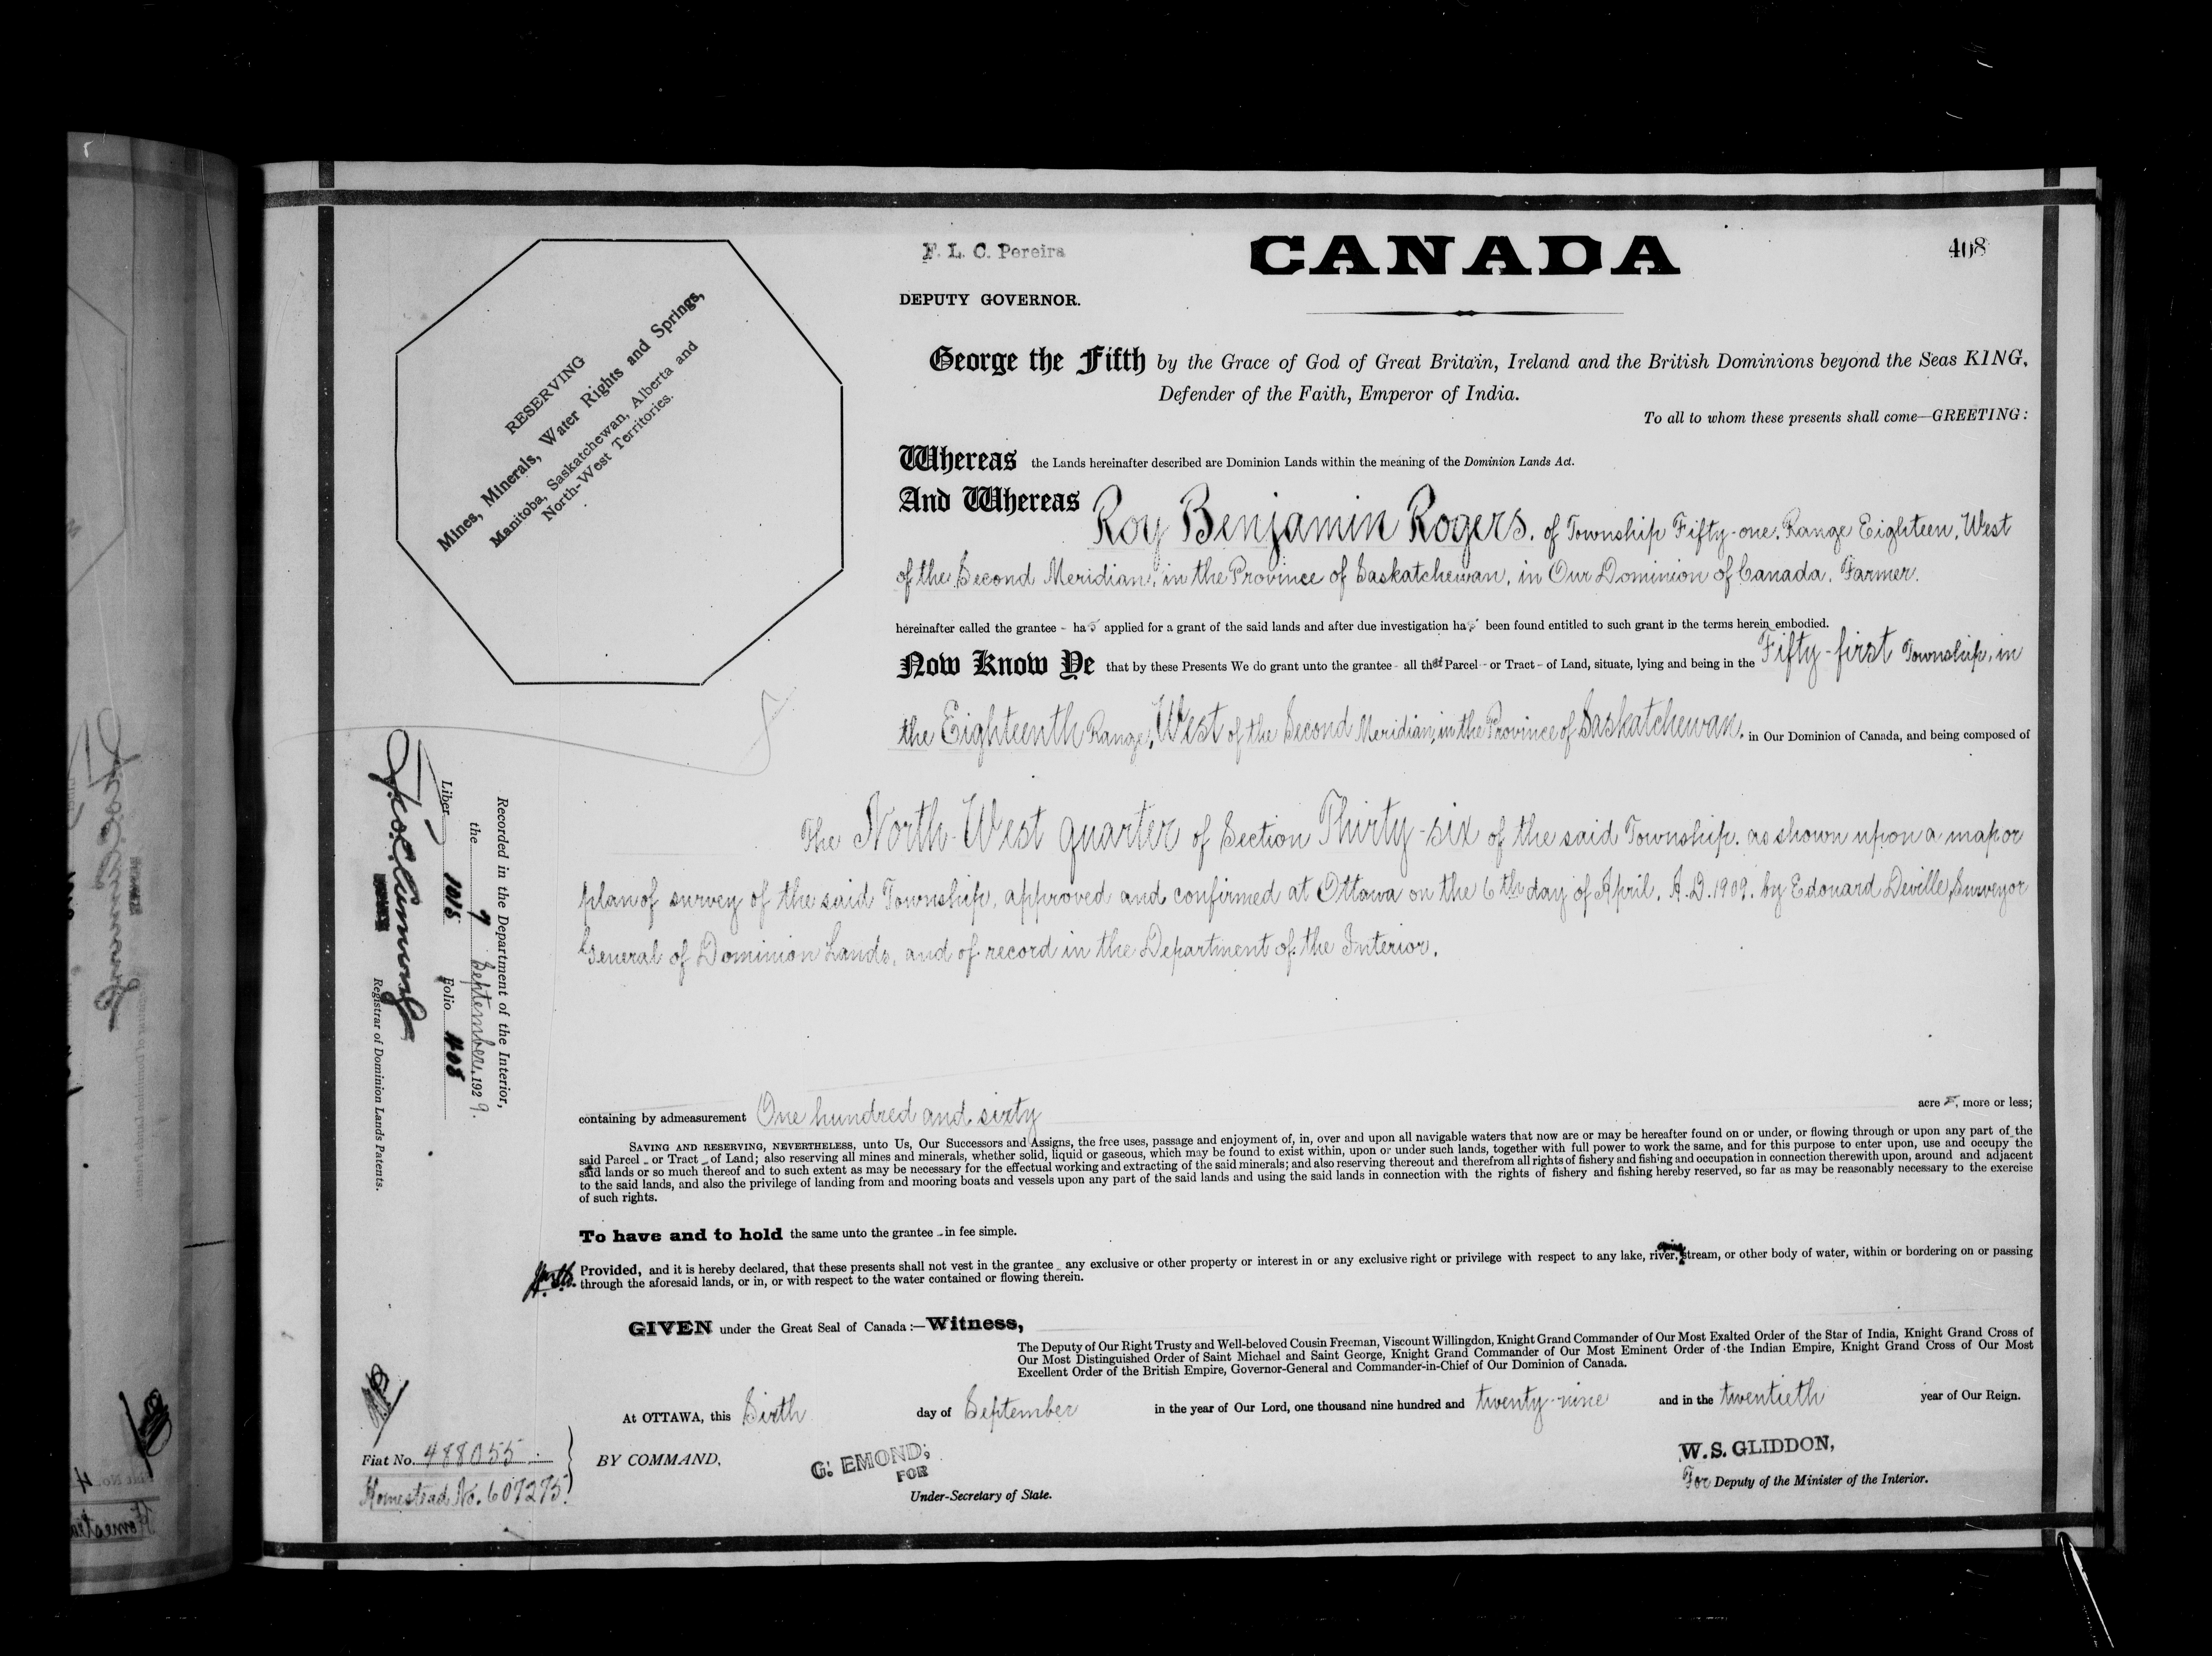 F. L. C. Pereira
CANADA
408
DEPUTY GOVERNOR.
RESERVING
Mines, Minerals, Water Rights and Springs,
Manitoba, Saskatchewan, Alberta and
North-West Territories.
George the Fifth by the Grace of God of Great Britain, Ireland and the British Dominions beyond the Seas KING,
Defender of the Faith, Emperor of India.
To all to whom these presents shall come—GREETING:
Whereas the Lands hereinafter described are Dominion Lands within the meaning of the Dominion Lands Act.
And Whereas Roy Benjamin Rogers, of Township Fifty-one, Range Eighteen, West
of the Second Meridian, in the Province of Saskatchewan, in Our Dominion of Canada, Farmer.
hereinafter called the grantee - has applied for a grant of the said lands and after due investigation has been found entitled to such grant in the terms herein embodied.
Now Know Ye that by these Presents We do grant unto the grantee - all that Parcel - or Tract - of Land, situate, lying and being in the Fifty-first Township, in
the Eighteenth Range, West of the Second Meridian, in the Province of Saskatchewan, in Our Dominion of Canada, and being composed of
The North-West quarter of Section Thirty-six of the said Township, as shown upon a map or
plan of survey of the said Township, approved and confirmed at Ottawa on the 6th day of April, A.D. 1909, by Edouard Deville, Surveyor
General of Dominion Lands, and of record in the Department of the Interior.
Recorded in the Department of the Interior,
the 9 September, 1929.
Liber 1015 Folio 408
Registrar of Dominion Lands Patents.
containing by admeasurement One hundred and sixty acres, more or less;
SAVING AND RESERVING, NEVERTHELESS, unto Us, Our Successors and Assigns, the free uses, passage and enjoyment of, in, over and upon all navigable waters that now are or may be hereafter found on or under, or flowing through or upon any part of the
said Parcel - or Tract - of Land; also reserving all mines and minerals, whether solid, liquid or gaseous, which may be found to exist within, upon or under such lands, together with full power to work the same, and for this purpose to enter upon, use and occupy the
said lands or so much thereof and to such extent as may be necessary for the effectual working and extracting of the said minerals; and also reserving thereout and therefrom all rights of fishery and fishing and occupation in connection therewith upon, around and adjacent
to the said lands, and also the privilege of landing from and mooring boats and vessels upon any part of the said lands and using the said lands in connection with the rights of fishery and fishing hereby reserved, so far as may be reasonably necessary to the exercise
of such rights.
To have and to hold the same unto the grantee - in fee simple.
Provided, and it is hereby declared, that these presents shall not vest in the grantee - any exclusive or other property or interest in or any exclusive right or privilege with respect to any lake, river, stream, or other body of water, within or bordering on or passing
through the aforesaid lands, or in, or with respect to the water contained or flowing therein.
GIVEN under the Great Seal of Canada:—Witness,
The Deputy of Our Right Trusty and Well-beloved Cousin Freeman, Viscount Willingdon, Knight Grand Commander of Our Most Exalted Order of the Star of India, Knight Grand Cross of
Our Most Distinguished Order of Saint Michael and Saint George, Knight Grand Commander of Our Most Eminent Order of the Indian Empire, Knight Grand Cross of Our Most
Excellent Order of the British Empire, Governor-General and Commander-in-Chief of Our Dominion of Canada.
At OTTAWA, this Sixth day of September in the year of Our Lord, one thousand nine hundred and twenty-nine and in the twentieth year of Our Reign.
Fiat No. 488055
Homestead No. 607275.
BY COMMAND,
G. EMOND,
FOR
Under-Secretary of State.
W. S. GLIDDON,
For Deputy of the Minister of the Interior.